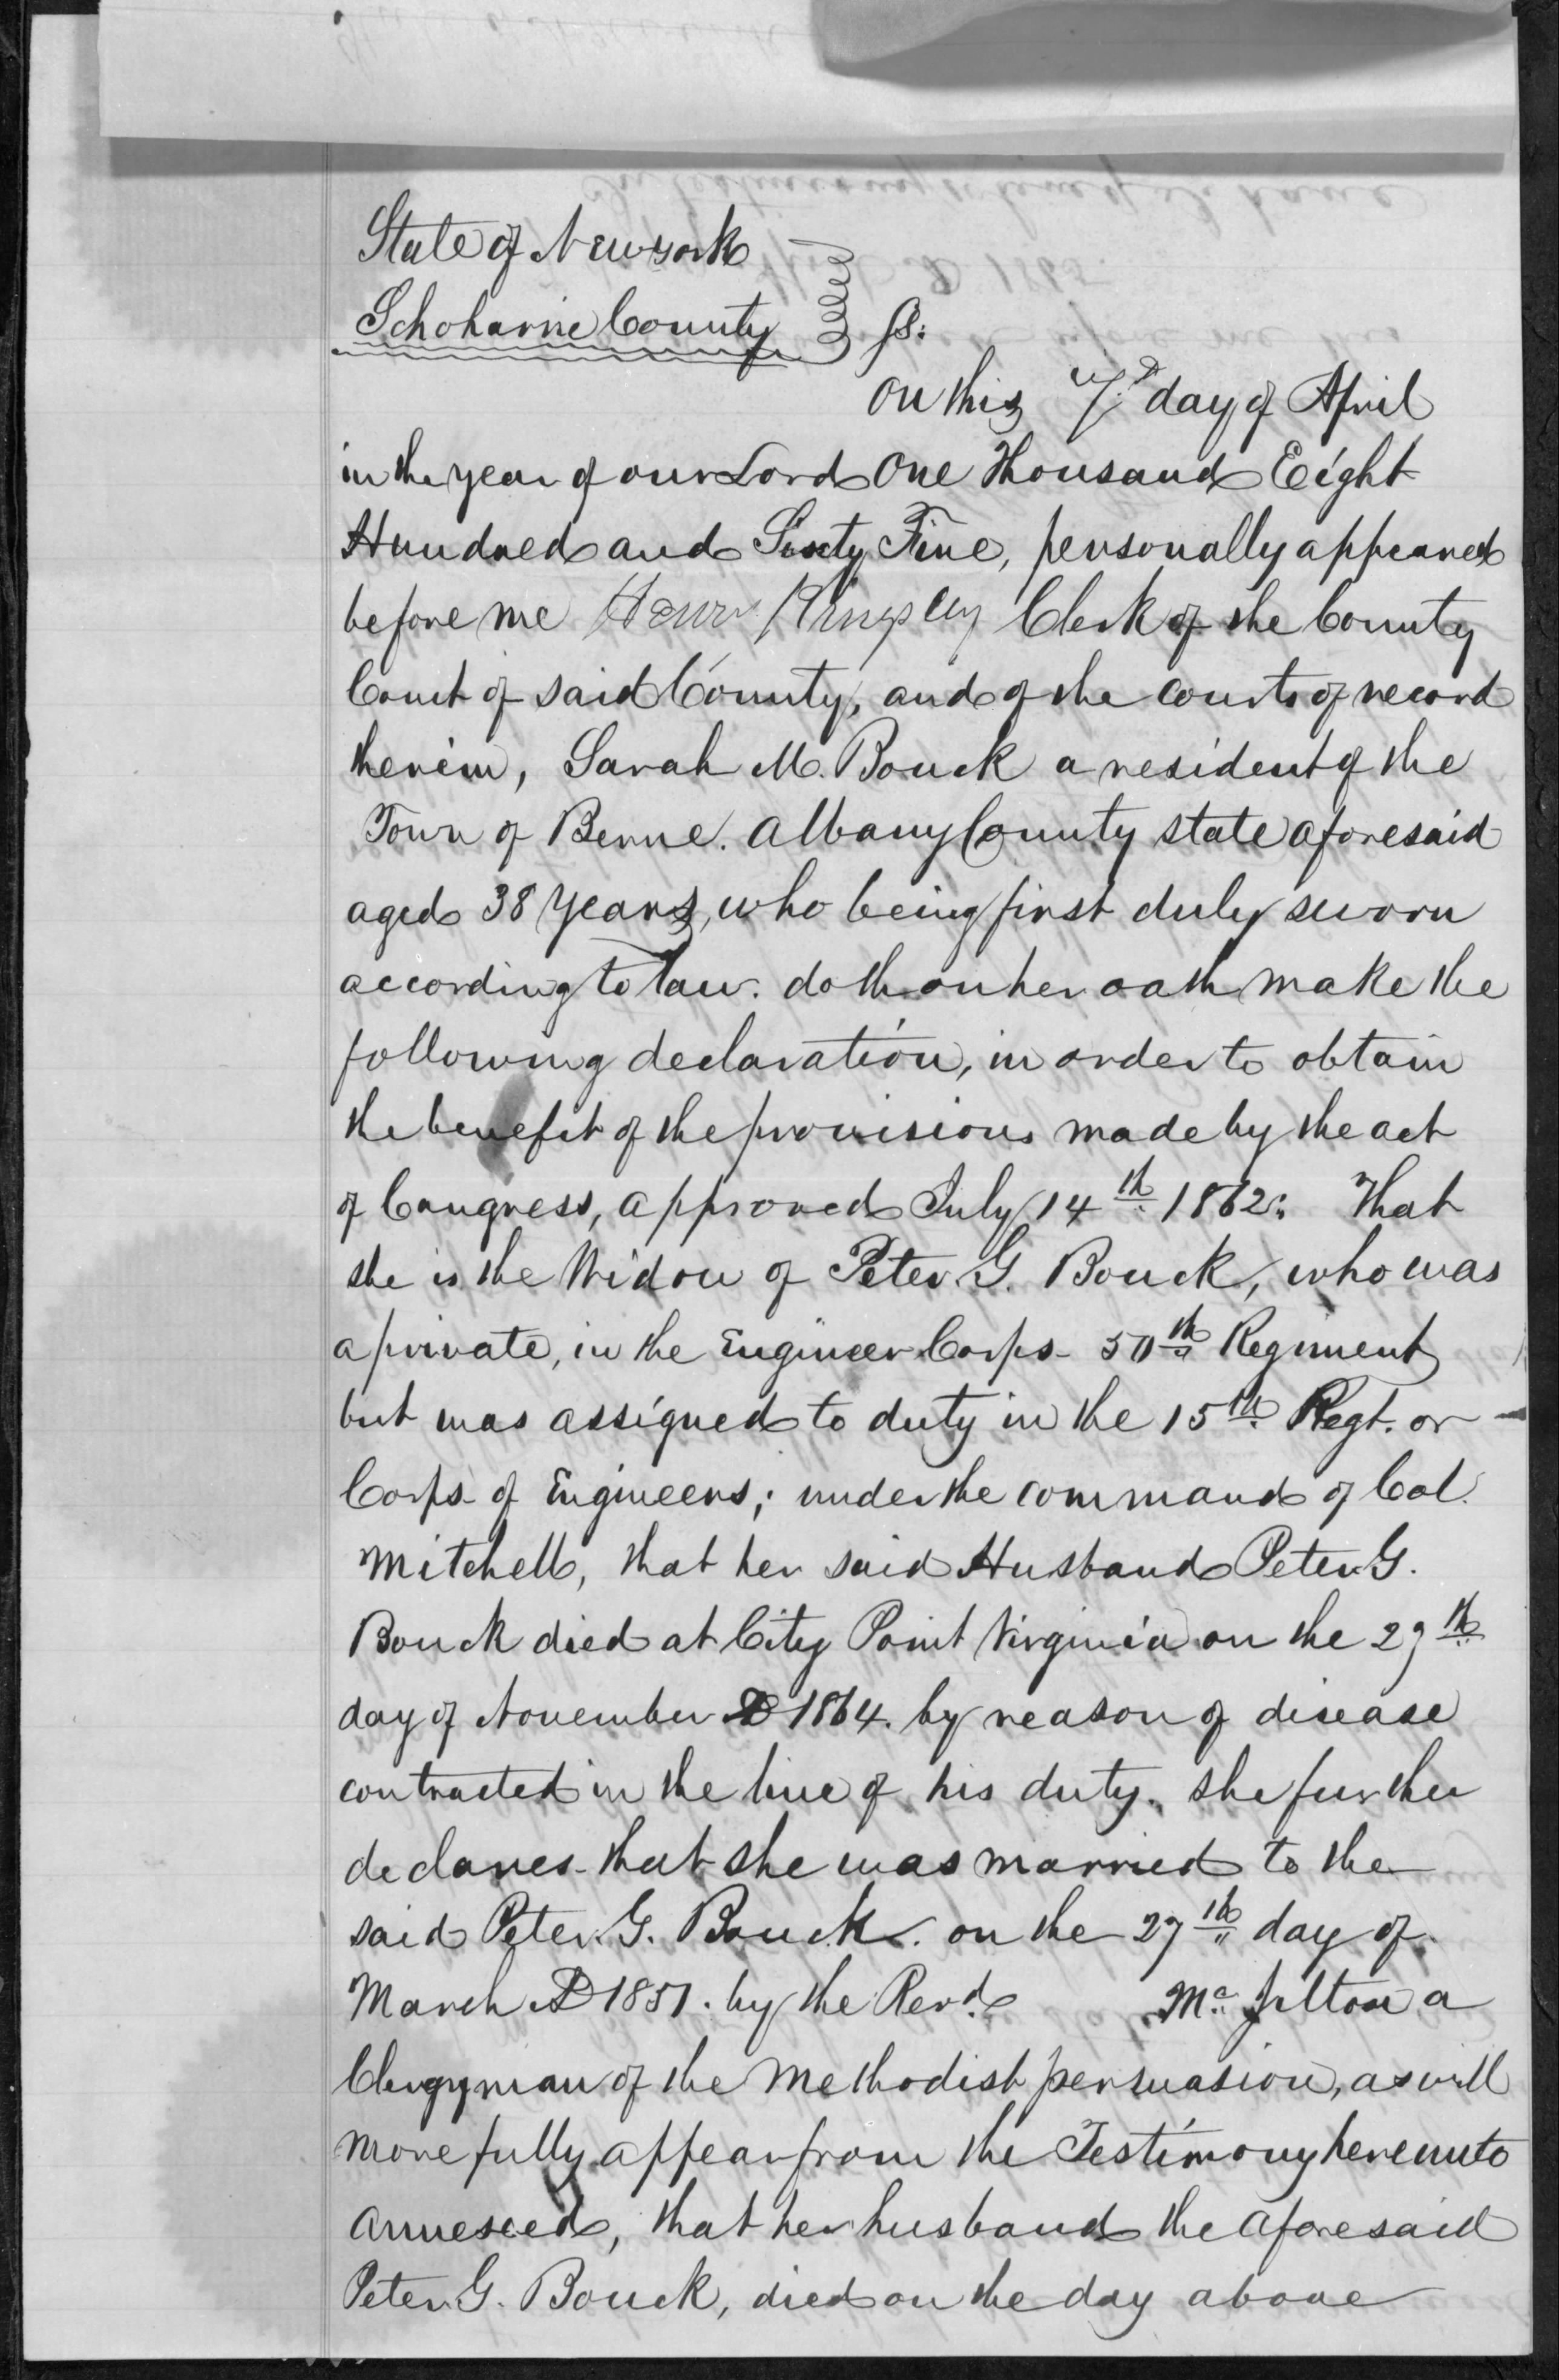 State of New york
Schoharie County } ss:
On this 7th day of April
in the year of our Lord One Thousand Eight
Hundred and Sixty Five, personally appeared
before me Henry Kingsley Clerk of the County
Court of said County, and of the courts of record
therein, Sarah M. Bouck a resident of the
Town of Berne. Albany County state aforesaid
aged 38 years, who being first duly sworn
according to law. doth on her oath make the
following declaration, in order to obtain
the benefit of the provisions made by the act
of Congress, approved July 14th 1862: That
she is the Widow of Peter G. Bouck, who was
a private, in the Engineer Corps 50th Regiment
but was assigned to duty in the 15th Regt. or
Corps of Engineers; under the command of Col.
Mitchell, that her said Husband Peter G.
Bouck died at City Point Virginia on the 29th
day of November AD 1864. by reason of disease
contracted in the line of his duty. she further
declares that she was married to the
said Peter. G. Bouck. on the 27th day of
March AD 1851. by the Revd. Mc a
Clergyman of the Methodist persuasion, as will
more fully appear from the Testimony hereunto
annexed, that her husband the aforesaid
Peter G. Bouck, died on the day above